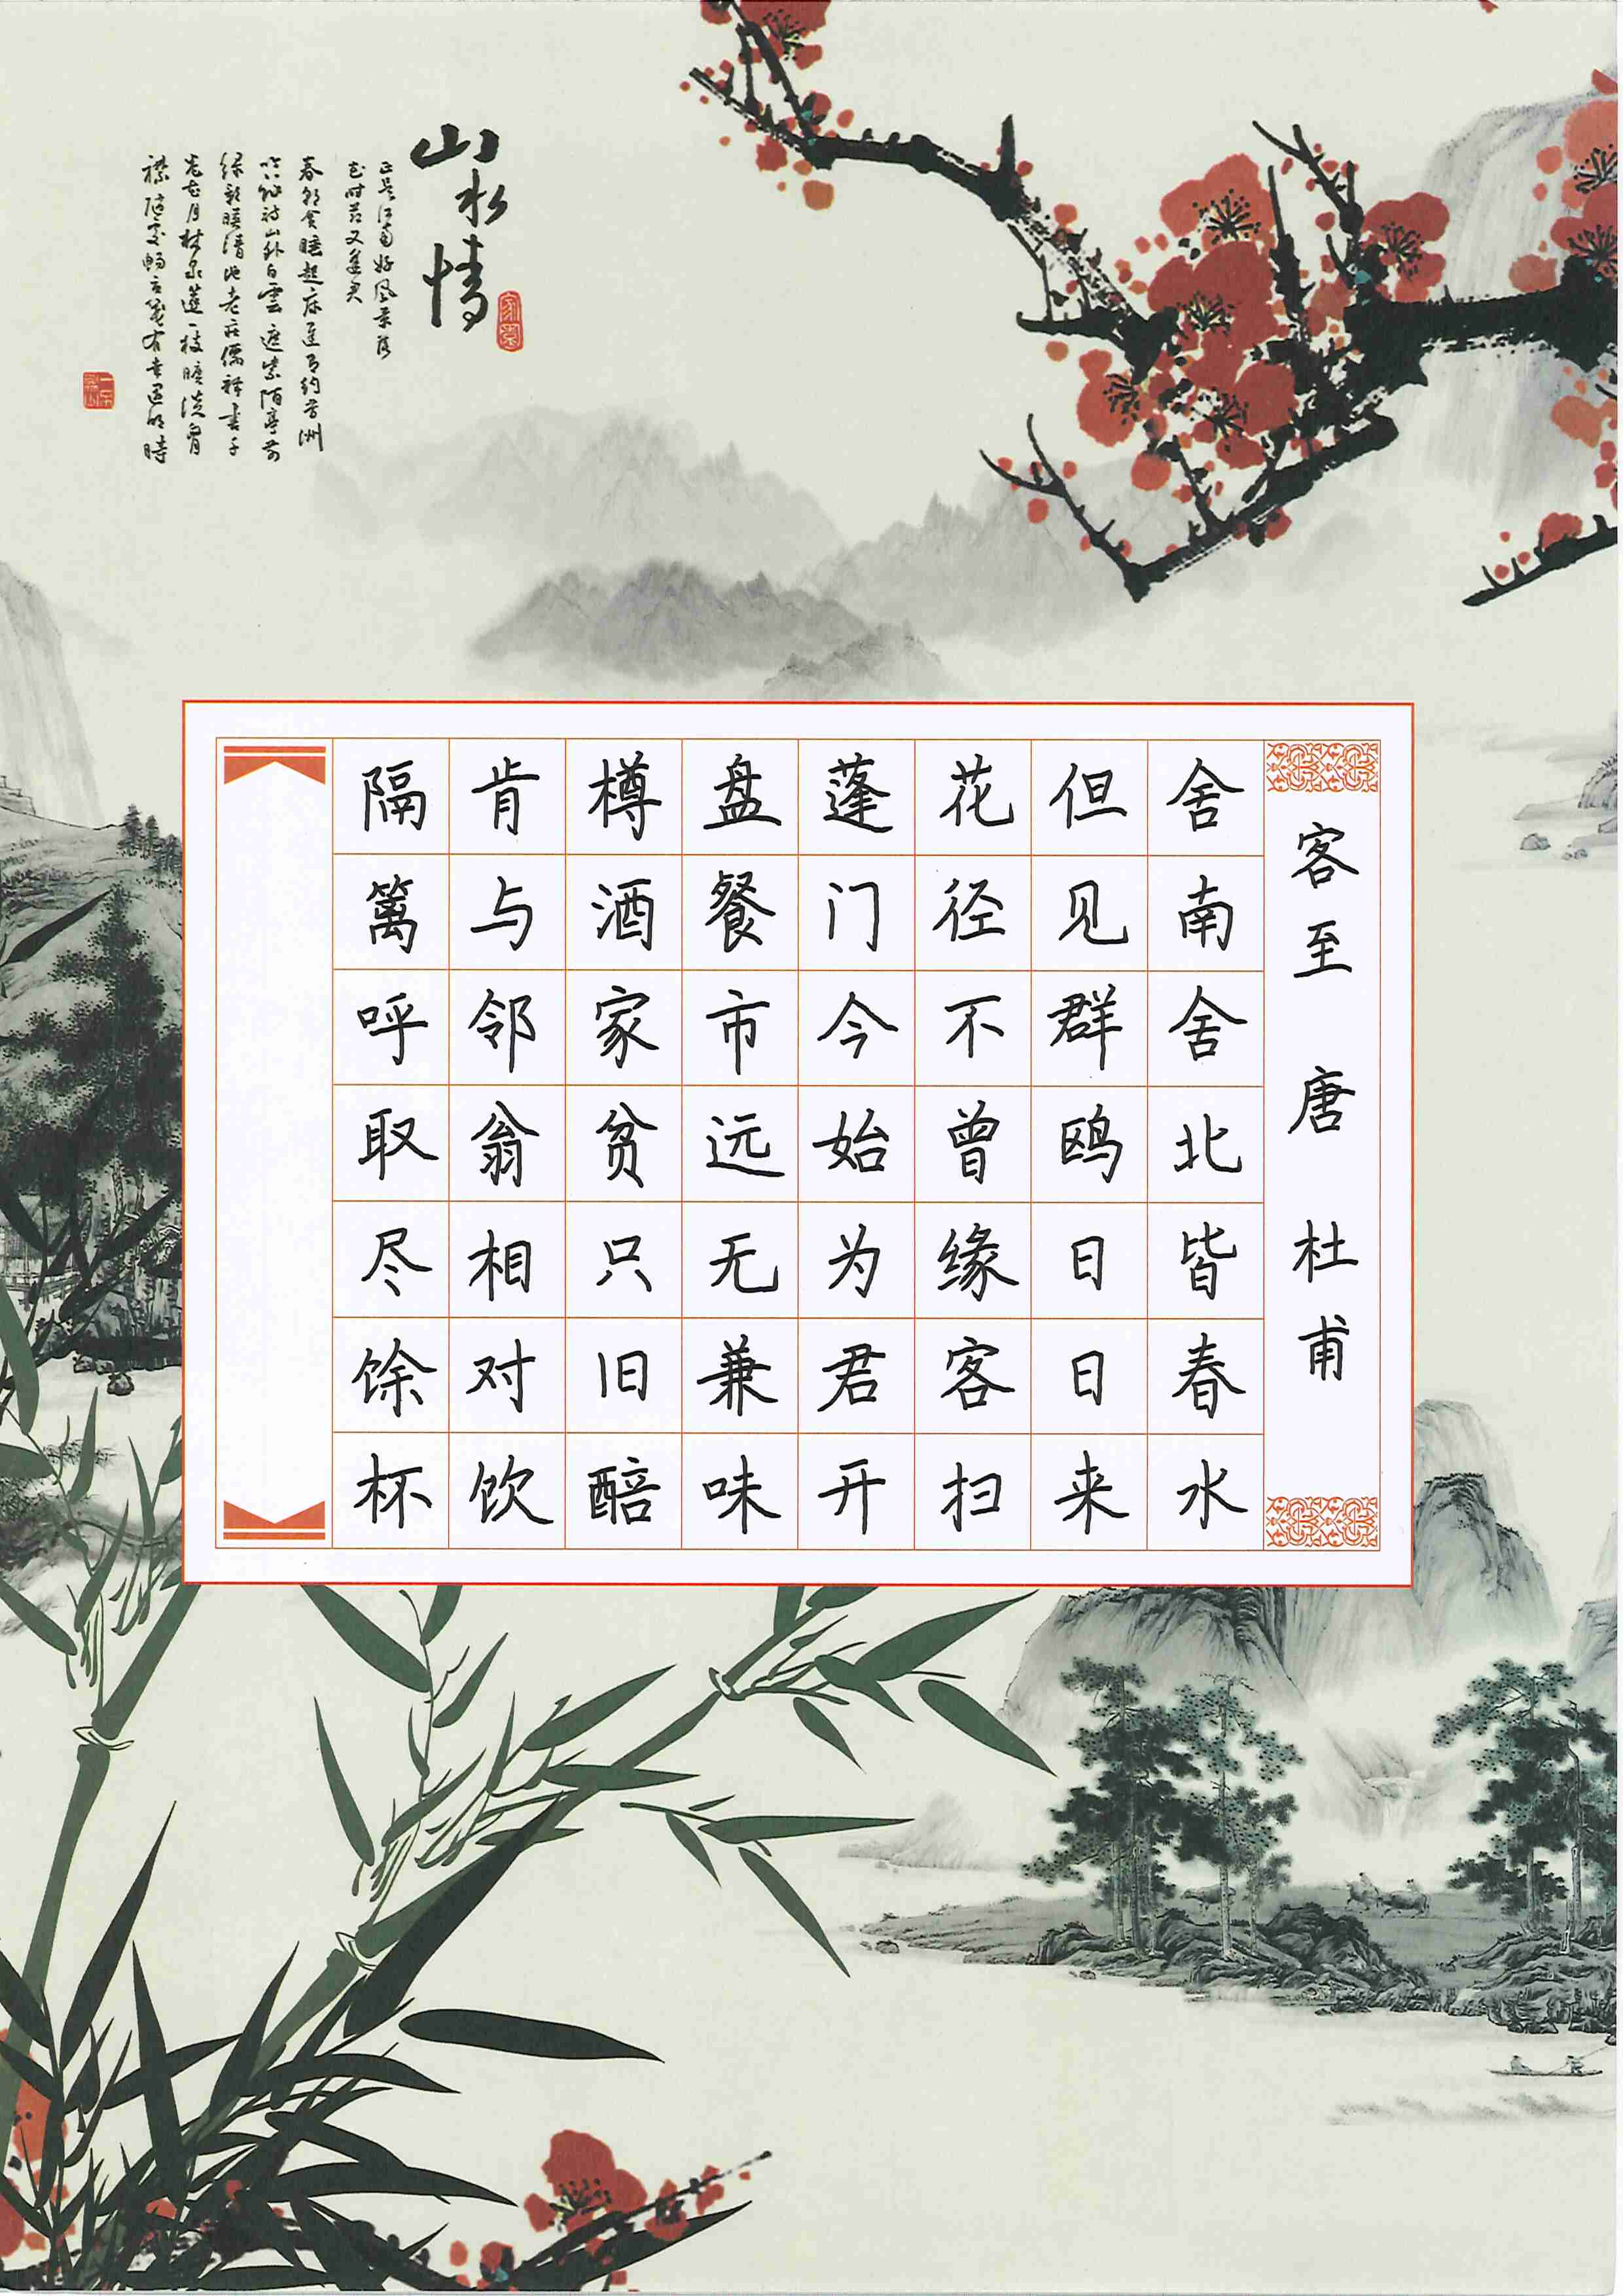 客至 唐 杜甫
舍南舍北皆春水
但见群鸥日日来
花径不曾缘客扫
蓬门今始为君开
盘餐市远无兼味
樽酒家贫只旧醅
肯与邻翁相对饮
隔篱呼取尽馀杯
山水情
正是江南好风景落
花时节又逢君